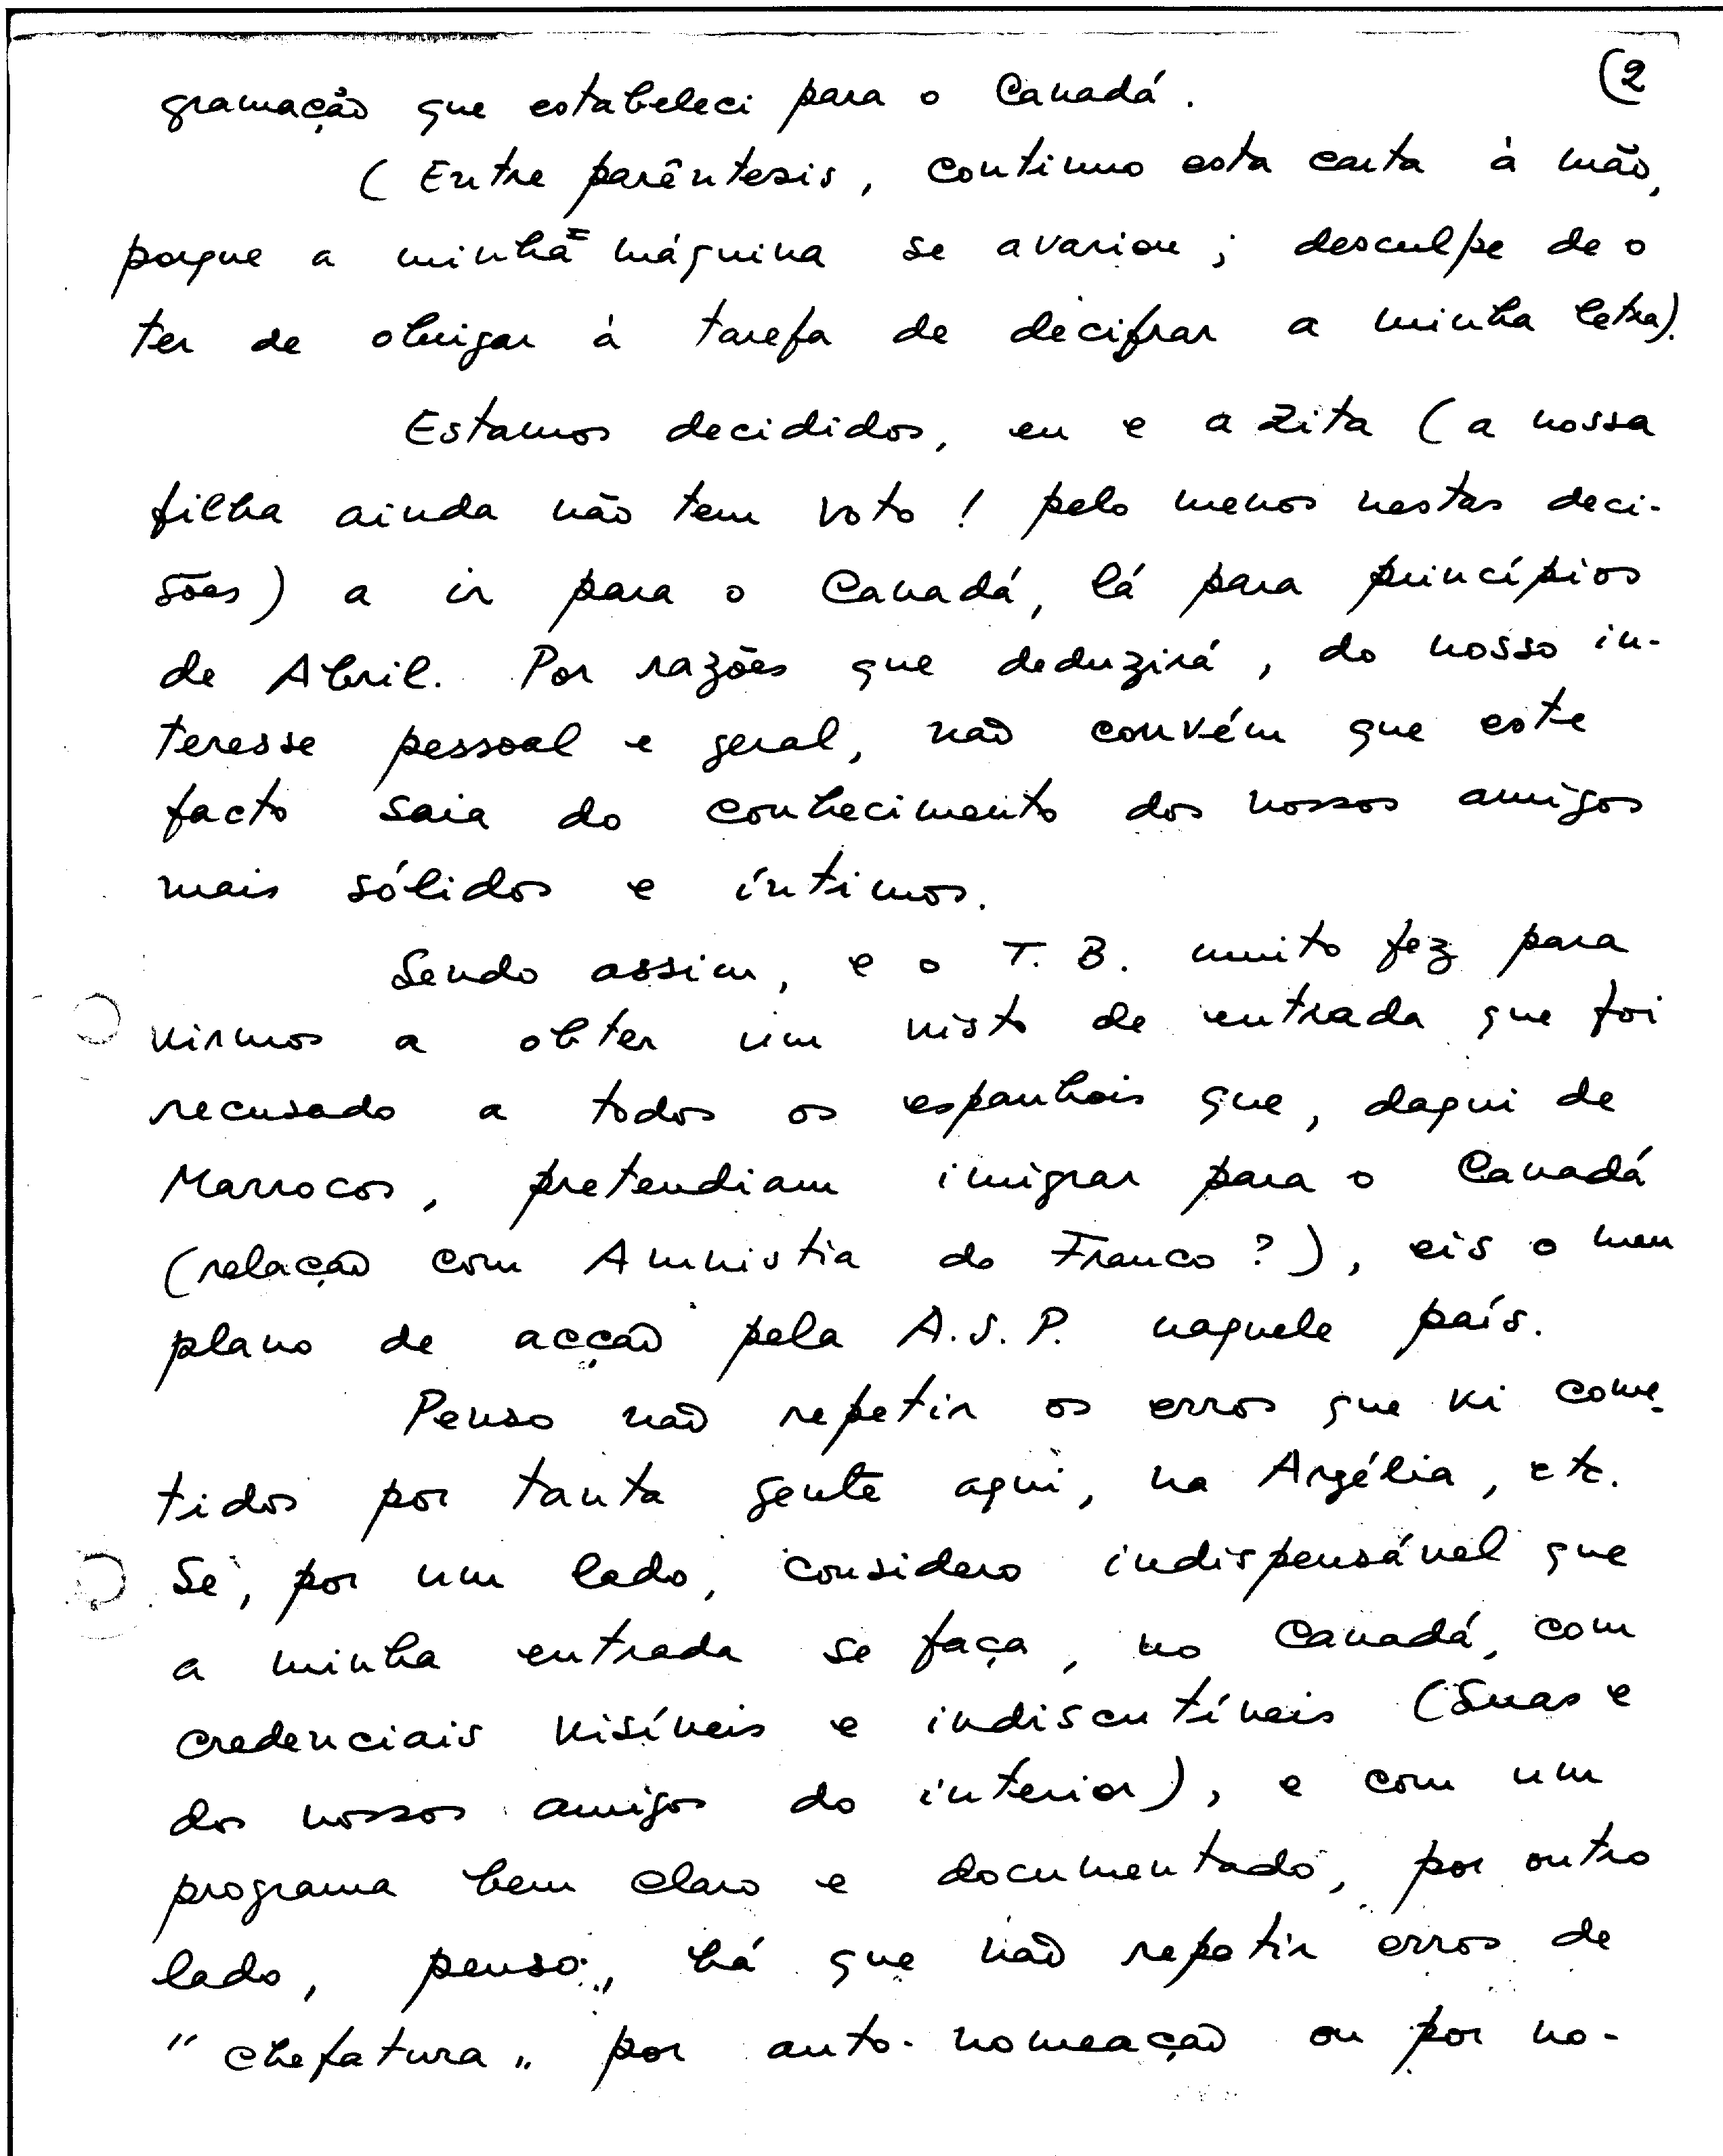 (2
gramação que estabeleci para o Canadá.
( Entre parêntesis, continuo esta carta à mão,
porque a minha máquina se avariou ; desculpe de o
ter de obrigar à tarefa de decifrar a minha letra).
Estamos decididos, eu e a Zita ( a nossa
filha ainda não tem voto ! pelo menos nestas deci-
sões ) a ir para o Canadá, lá para princípios
de Abril. Por razões que deduzirá, do nosso in-
teresse pessoal e geral, não convém que este
facto saia do conhecimento dos nossos amigos
mais sólidos e íntimos.
Sendo assim, e o T. B. muito fez para
virmos a obter um visto de entrada que foi
recusado a todos os espanhois que, daqui de
Marrocos, pretendiam imigrar para o Canadá
(relação com Amnistia do Franco ? ), eis o meu
plano de acção pela A. S. P. naquele país.
Penso não repetir os erros que vi come-
tidos por tanta gente aqui, na Argélia, etc.
Se, por um lado, considero indispensável que
a minha entrada se faça, no Canadá, com
credenciais visíveis e indiscutíveis (Suas e
dos nossos amigos do interior), e com um
programa bem claro e documentado, por outro
lado, penso, há que não repetir erros de
"chefatura" por auto-nomeação ou por no-